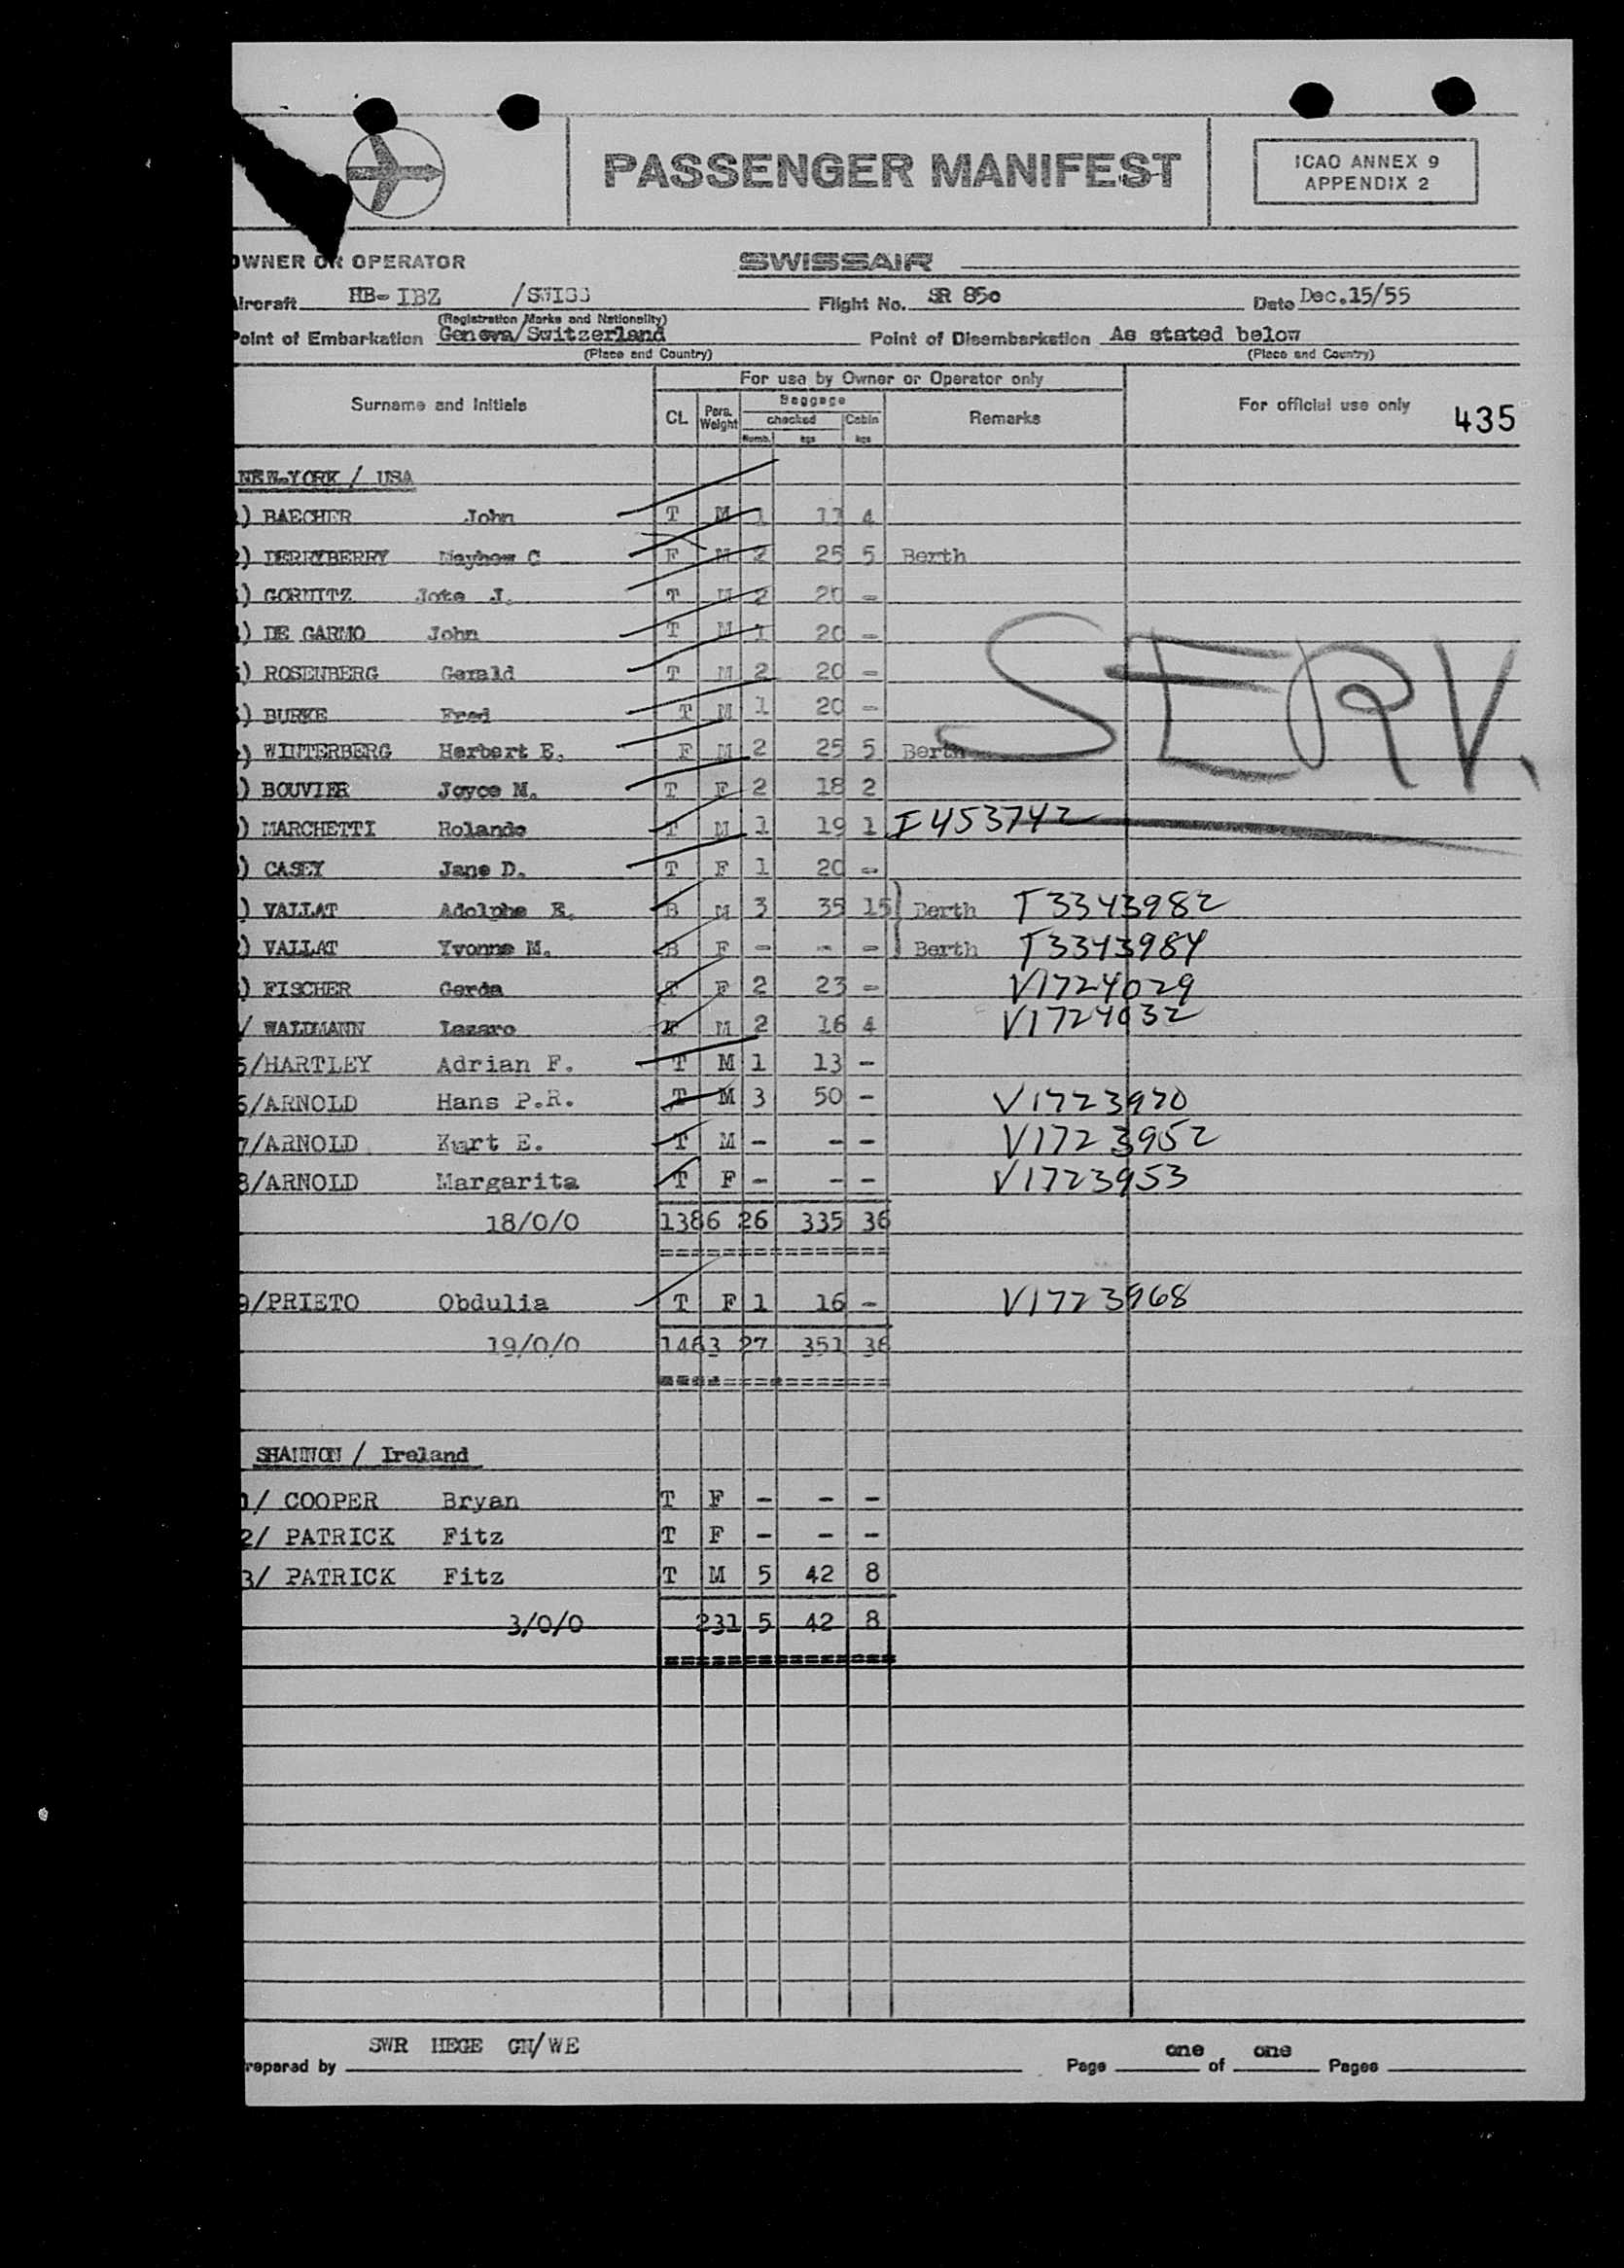 PASSENGER MANIFEST
ICAO ANNEX 9
APPENDIX 2
OWNER OR OPERATOR SWISSAIR
Aircraft HB-IBZ /SWISS Flight No. SR 850 Date Dec.15/55
(Registration Marks and Nationality)
Point of Embarkation Geneva/Switzerland Point of Disembarkation As stated below
(Place and Country) (Place and Country)
For use by Owner or Operator only
Surname and Initials CL Pers. Weight Baggage checked Numb. kgs Cabin kgs Remarks For official use only 435
NEW-YORK / USA
) BAECHER John T M 1 13 4
2) DERRYBERRY Mayhew C F M 2 25 5 Berth
) GORNITZ J. T M 2 20 -
) DE GARMO John T M 1 20 -
) ROSENBERG Gerald T M 2 20 -
) BURKE Fred T M 1 20 -
) WINTERBERG Herbert E. F M 2 25 5 Berth
SERV.
) BOUVIER Joyce M. T F 2 18 2
) MARCHETTI Rolando T M 1 19 1 I453742
) CASEY Jane D. T F 1 20 -
) VALLAT Adolphe R. B M 3 35 15 Berth T3343982
) VALLAT Yvonne M. B F - - - Berth T3343984
) FISCHER Gerda T F 2 23 - V1724029
/ WALDMANN Lazaro F M 2 16 4 V1724032
5/HARTLEY Adrian F. T M 1 13 -
6/ARNOLD Hans P.R. T M 3 50 - V1723970
7/ARNOLD Kurt E. T M - - - V1723952
8/ARNOLD Margarita T F - - - V1723953
18/0/0 1386 26 335 36
===============
9/PRIETO Obdulia T F 1 16 - V1723968
19/0/0 1463 27 351 36
===============
SHANNON / Ireland
1/ COOPER Bryan T F - - -
2/ PATRICK Fitz T F - - -
3/ PATRICK Fitz T M 5 42 8
3/0/0 231 5 42 8
===============
SWR HEGE GN/WE
repared by Page one of one Pages